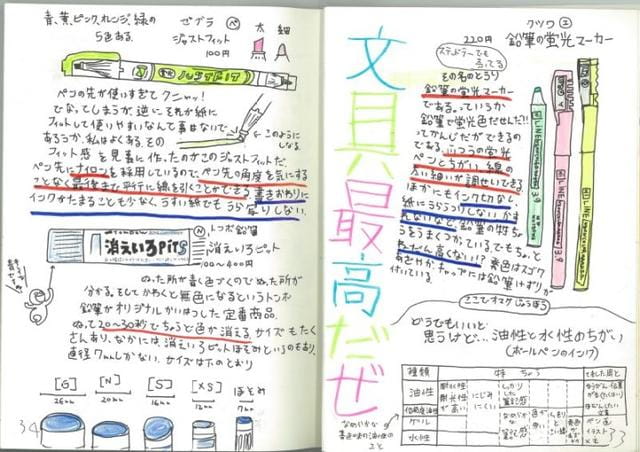 青、黄、ピンク、オレンジ、緑の
5色ある。
ゼブラ ペ
ジャストフィット
100円
太 細
JUSTFIT
ペンの先が使いすぎてクニャッ!
になってしまうが、逆に それが紙に
フィットして使いやすいなんて事はないで
あろうか、私はよくある。その
フィット感 を見事に作ったのがこのジャストフィットだ。
ペン先にナイロンを採用しているので、ペン先の角度を気にする
ことなく最後まで平行に線を引くことができる。書きおわりに
インクがたまることも少なく、うすい紙でもうら しない。
このように
なる。
消えいろPiT S
トンボ鉛筆
消えいろピット
00~400円
ぬった所が青く色づくのでぬった所が
分かる。そして かわくと無色になるというトンボ
鉛筆がオリジナルがいはつした定番商品。
ぬって20~30秒でちょうど色が消える。サイズもたく
さんあり、なかには、消えいろピットほそみというのもあり、
直径7mmしかない。サイズは下のとおり
[G] [N] [S] [XS] ほそみ
26mm 20mm 12mm 7mm
34
文具最高だぜ
クツワ
220円 鉛筆の蛍光マーカー
ステッドラーでも
売ってる
その名のとうり
鉛筆の蛍光マーカー
である。っていうか
鉛筆で蛍光色だせんだ!!
ってかんじだができるの
である。ふつうの蛍光
ペンとちがい 線の
太い細いが調せいできる
ほかにもインク切れなし、
紙にうらうつりしない、かす
れないなど、鉛筆の特ちょ
うをうまくつかっている。でもちょっと
ねだん高くない!? 蛍色はスゴク
あざやか。キャップには鉛筆けずりが
付いている。
ここでオマケ じょうほう
どうでもいいと
思うけど… 油性と水性のちがい
(ボールペンのインク)
種類 特ちょう
油性
低粘度油性
ゲル
水性
耐水性
耐光性
が高い
にじみ
にくい
なめらかな
書き味の油性の
こと
33